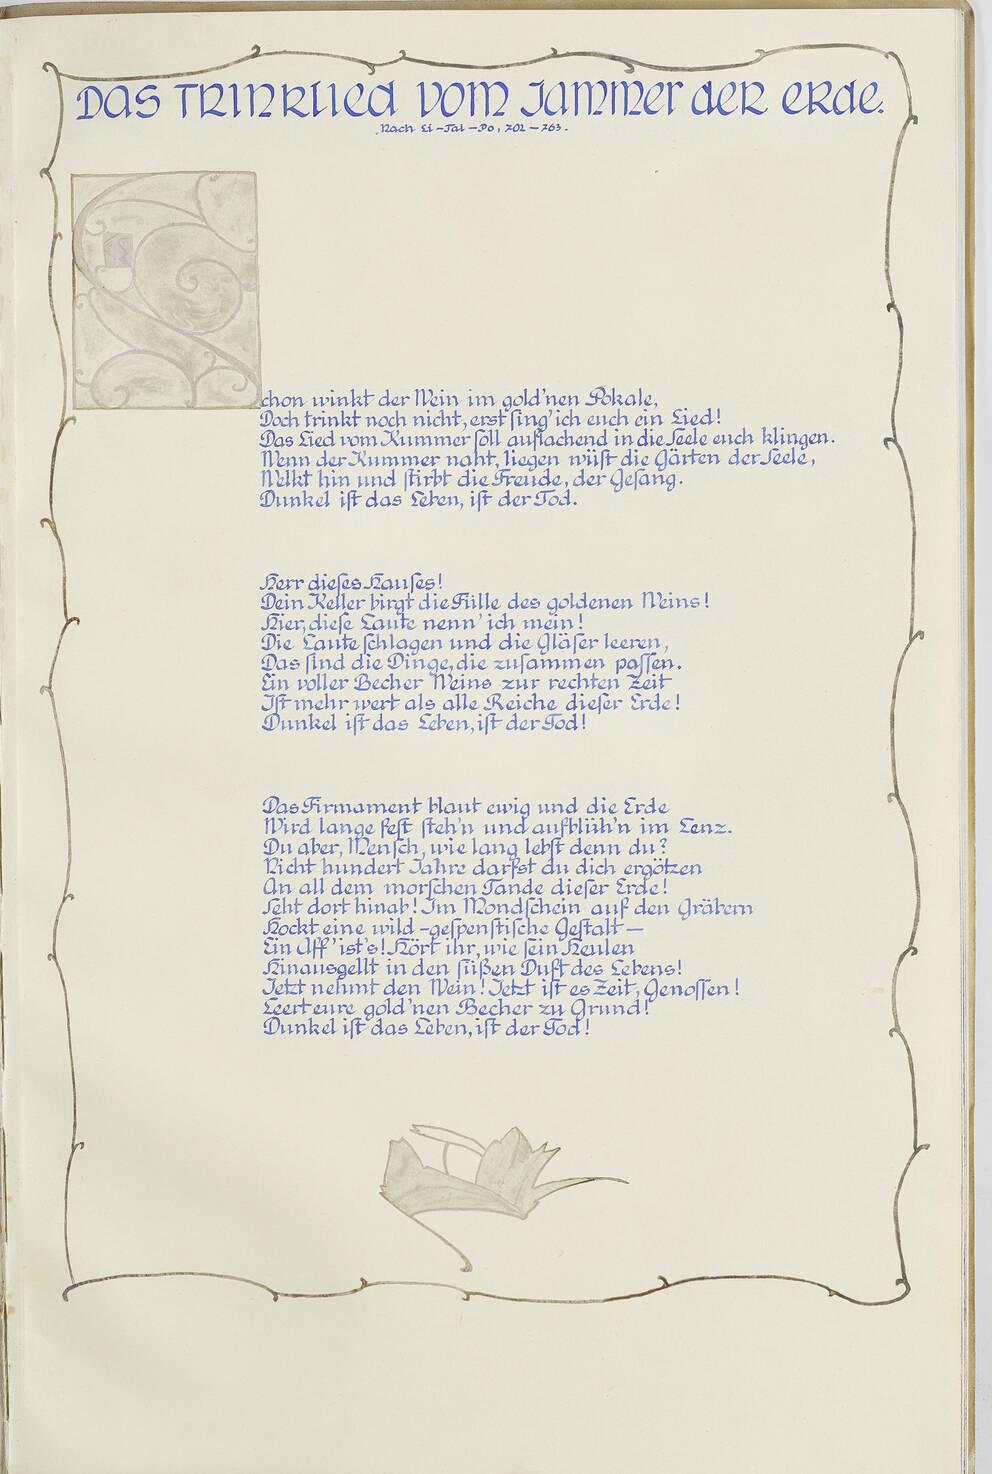 DAS TRINKLIED VOM JAMMER DER ERDE.
Nach Li-Tai-Po, 702-763.
Schon winkt der Wein im gold'nen Pokale,
Doch trinkt noch nicht, erst sing' ich euch ein Lied!
Das Lied vom Kummer soll auflachend in die Seele euch klingen.
Wenn der Kummer naht, liegen wüst die Gärten der Seele,
Welkt hin und stirbt die Freude, der Gesang.
Dunkel ist das Leben, ist der Tod.
Herr dieses Hauses!
Dein Keller birgt die Fülle des goldenen Weins!
Hier, diese Laute nenn' ich mein!
Die Laute schlagen und die Gläser leeren,
Das sind die Dinge, die zusammen passen.
Ein voller Becher Weins zur rechten Zeit
Ist mehr wert als alle Reiche dieser Erde!
Dunkel ist das Leben, ist der Tod!
Das Firmament blaut ewig und die Erde
Wird lange fest steh'n und aufblüh'n im Lenz.
Du aber, Mensch, wie lang lebst denn du?
Nicht hundert Jahre darfst du dich ergötzen
An all dem morschen Tande dieser Erde!
Seht dort hinab! Im Mondschein auf den Gräbern
Hockt eine wild-gespenstische Gestalt—
Ein Aff' ist's! Hört ihr, wie sein Heulen
Hinausgellt in den süßen Duft des Lebens!
Jetzt nehmt den Wein! Jetzt ist es Zeit, Genossen!
Leert eure gold'nen Becher zu Grund!
Dunkel ist das Leben, ist der Tod!